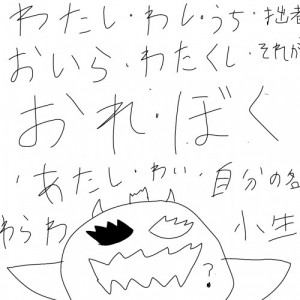 わたし・わし・うち・拙者
おいら・わたくし・それが
おれ・ぼく
・あたし・わい・自分の名
わらわ 小生
?